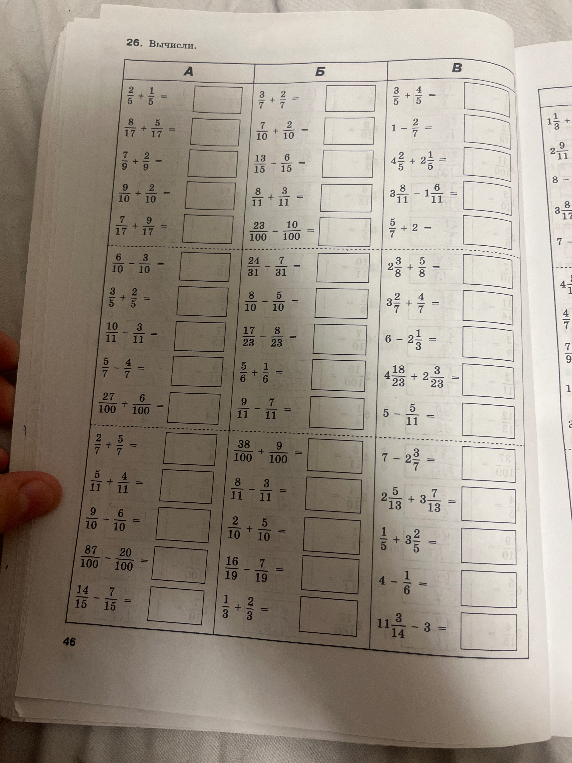 26. Вычисли.
А Б В
2/5 + 1/5 = 3/7 + 2/7 = 3/5 + 4/5 =
8/17 + 5/17 = 7/10 + 2/10 = 1 − 2/7 =
7/9 + 2/9 = 13/15 − 6/15 = 4 2/5 + 2 1/5 =
9/10 + 2/10 = 8/11 + 3/11 = 3 8/11 − 1 6/11 =
7/17 + 9/17 = 23/100 − 10/100 = 5/7 + 2 =
6/10 − 3/10 = 24/31 − 7/31 = 2 3/8 + 5/8 =
3/5 + 2/5 = 8/10 − 5/10 = 3 2/7 + 4/7 =
10/11 − 3/11 = 17/23 − 8/23 = 6 − 2 1/3 =
5/7 − 4/7 = 5/6 + 1/6 = 4 18/23 + 2 3/23 =
27/100 + 6/100 = 9/11 − 7/11 = 5 − 5/11 =
2/7 + 5/7 = 38/100 + 9/100 = 7 − 2 3/7 =
5/11 + 4/11 = 8/11 − 3/11 = 2 5/13 + 3 7/13 =
9/10 − 6/10 = 2/10 + 5/10 = 1/5 + 3 2/5 =
87/100 − 20/100 = 16/19 − 7/19 = 4 − 1/6 =
14/15 − 7/15 = 1/3 + 2/3 = 11 3/14 − 3 =
46
1 1/3 +
2 9/11
8 −
7 −